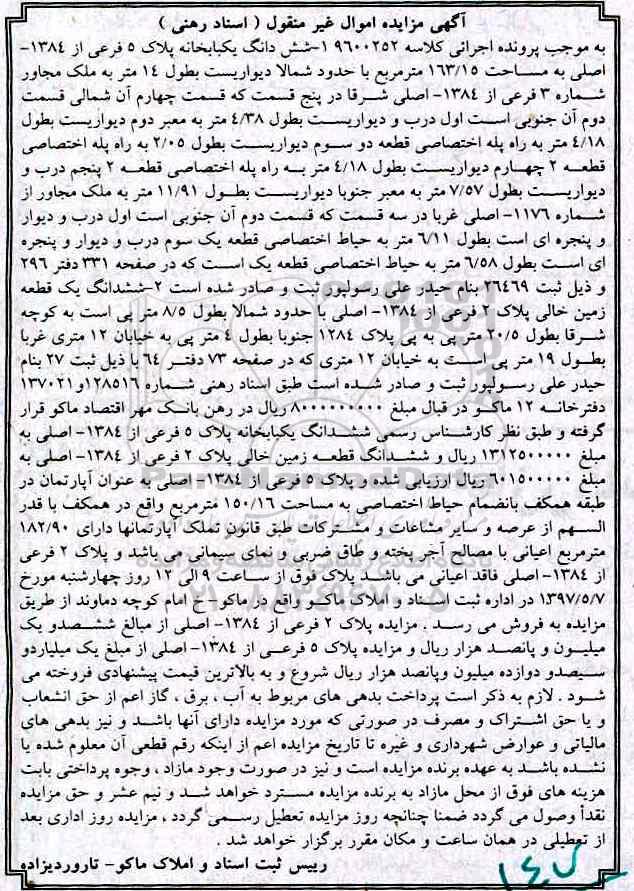 آگهی مزایده اموال غیر منقول ( اسناد رهنی )
به موجب پرونده اجرائی کلاسه ۹۶۰۰۲۵۲ ۱-شش دانگ یکبابخانه پلاک ۵ فرعی از ۱۳۸۴-
اصلی به مساحت ۱۶۳/۱۵ مترمربع با حدود شمالا دیواریست بطول ۱۴ متر به ملک مجاور
شماره ۳ فرعی از ۱۳۸۴- اصلی شرقا در پنج قسمت که قسمت چهارم آن شمالی قسمت
دوم آن جنوبی است اول درب و دیواریست بطول ۴/۳۸ متر به معبر دوم دیواریست بطول
۴/۱۸ متر به راه پله اختصاصی قطعه دو سوم دیواریست بطول ۲/۰۵ به راه پله اختصاصی
قطعه ۲ چهارم دیواریست بطول ۴/۱۸ متر به راه پله اختصاصی قطعه ۲ پنجم درب و
دیواریست بطول ۷/۵۷ متر به معبر جنوبا دیواریست بطول ۱۱/۹۱ متر به ملک مجاور از
شماره ۱۱۷۶- اصلی غربا در سه قسمت که قسمت دوم آن جنوبی است اول درب و دیوار
و پنجره ای است بطول ۶/۱۱ متر به حیاط اختصاصی قطعه یک سوم درب و دیوار و پنجره
ای است بطول ۶/۵۸ متر به حیاط اختصاصی قطعه یک است که در صفحه ۳۳۱ دفتر ۲۹۶
و ذیل ثبت ۲۶۴۶۹ بنام حیدر علی رسولپور ثبت و صادر شده است ۲-ششدانگ یک قطعه
زمین خالی پلاک ۲ فرعی از ۱۳۸۴- اصلی با حدود شمالا بطول ۸/۵ متر پی است به کوچه
شرقا بطول ۲۰/۵ متر پی به پی پلاک ۱۲۸۴ جنوبا بطول ۴ متر پی به خیابان ۱۲ متری غربا
بطول ۱۹ متر پی است به خیابان ۱۲ متری که در صفحه ۷۳ دفتر ۶۴ با ذیل ثبت ۲۷ بنام
حیدر علی رسولپور ثبت و صادر شده است طبق اسناد رهنی شماره ۱۲۸۵۱۶و ۱۳۷۰۲۱
دفترخانه ۱۲ ماکو در قبال مبلغ ۸۰۰۰۰۰۰۰۰۰ ریال در رهن بانک مهر اقتصاد ماکو قرار
گرفته و طبق نظر کارشناس رسمی ششدانگ یکبابخانه پلاک ۵ فرعی از ۱۳۸۴- اصلی به
مبلغ ۱۳۱۲۵۰۰۰۰۰ ریال و ششدانگ قطعه زمین خالی پلاک ۲ فرعی از ۱۳۸۴- اصلی به
مبلغ ۶۰۱۵۰۰۰۰۰ ریال ارزیابی شده و پلاک ۵ فرعی از ۱۳۸۴- اصلی به عنوان آپارتمان در
طبقه همکف بانضمام حیاط اختصاصی به مساحت ۱۵۰/۱۶ مترمربع واقع در همکف با قدر
السهم از عرصه و سایر مشاعات و مشترکات طبق قانون تملک آپارتمانها دارای ۱۸۲/۹۰
مترمربع اعیانی با مصالح آجر پخته و طاق ضربی و نمای سیمانی می باشد و پلاک ۲ فرعی
از ۱۳۸۴- اصلی فاقد اعیانی می باشد پلاک فوق از ساعت ۹ الی ۱۲ روز چهارشنبه مورخ
۱۳۹۷/۵/۷ در اداره ثبت اسناد و املاک ماکو واقع در ماکو - خ امام کوچه دماوند از طریق
مزایده به فروش می رسد . مزایده پلاک ۲ فرعی از ۱۳۸۴- اصلی از مبالغ ششصدو یک
میلیون و پانصد هزار ریال و مزایده پلاک ۵ فرعی از ۱۳۸۴- اصلی از مبلغ یک میلیاردو
سیصدو دوازده میلیون وپانصد هزار ریال شروع و به بالاترین قیمت پیشنهادی فروخته می
شود . لازم به ذکر است پرداخت بدهی های مربوط به آب ، برق ، گاز اعم از حق انشعاب
و یا حق اشتراک و مصرف در صورتی که مورد مزایده دارای آنها باشد و نیز بدهی های
مالیاتی و عوارض شهرداری و غیره تا تاریخ مزایده اعم از اینکه رقم قطعی آن معلوم شده یا
نشده باشد به عهده برنده مزایده است و نیز در صورت وجود مازاد ، وجوه پرداختی بابت
هزینه های فوق از محل مازاد به برنده مزایده مسترد خواهد شد و نیم عشر و حق مزایده
نقدأ وصول می گردد ضمنا چنانچه روز مزایده تعطیل رسمی گردد ، مزایده روز اداری بعد
از تعطیلی در همان ساعت و مکان مقرر برگزار خواهد شد .
رییس ثبت اسناد و املاک ماکو- تاروردیزاده